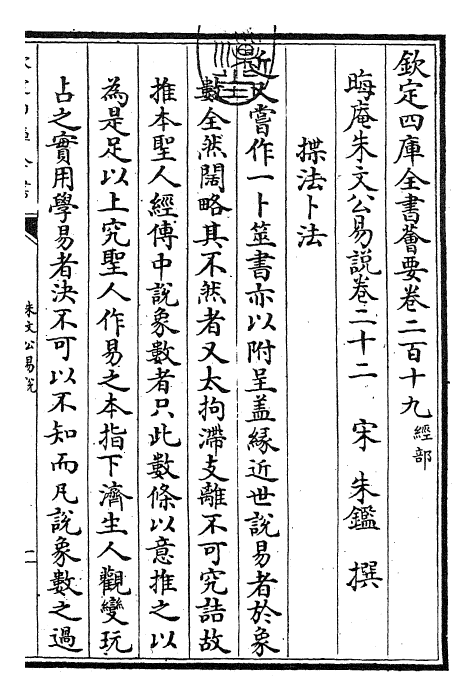 欽定四庫全書薈要卷二百十九 經部
晦庵朱文公易說卷二十二 宋 朱鑑 撰
揲法卜法
近又嘗作一卜筮書亦以附呈盖緣近世說易者於象
數全然闊略其不然者又太拘滯支離不可究詰故
推本聖人經傳中說象數者只此數條以意推之以
為是足以上究聖人作易之本指下濟生人觀變玩
占之實用學易者決不可以不知而凡說象數之過
朱文公易說